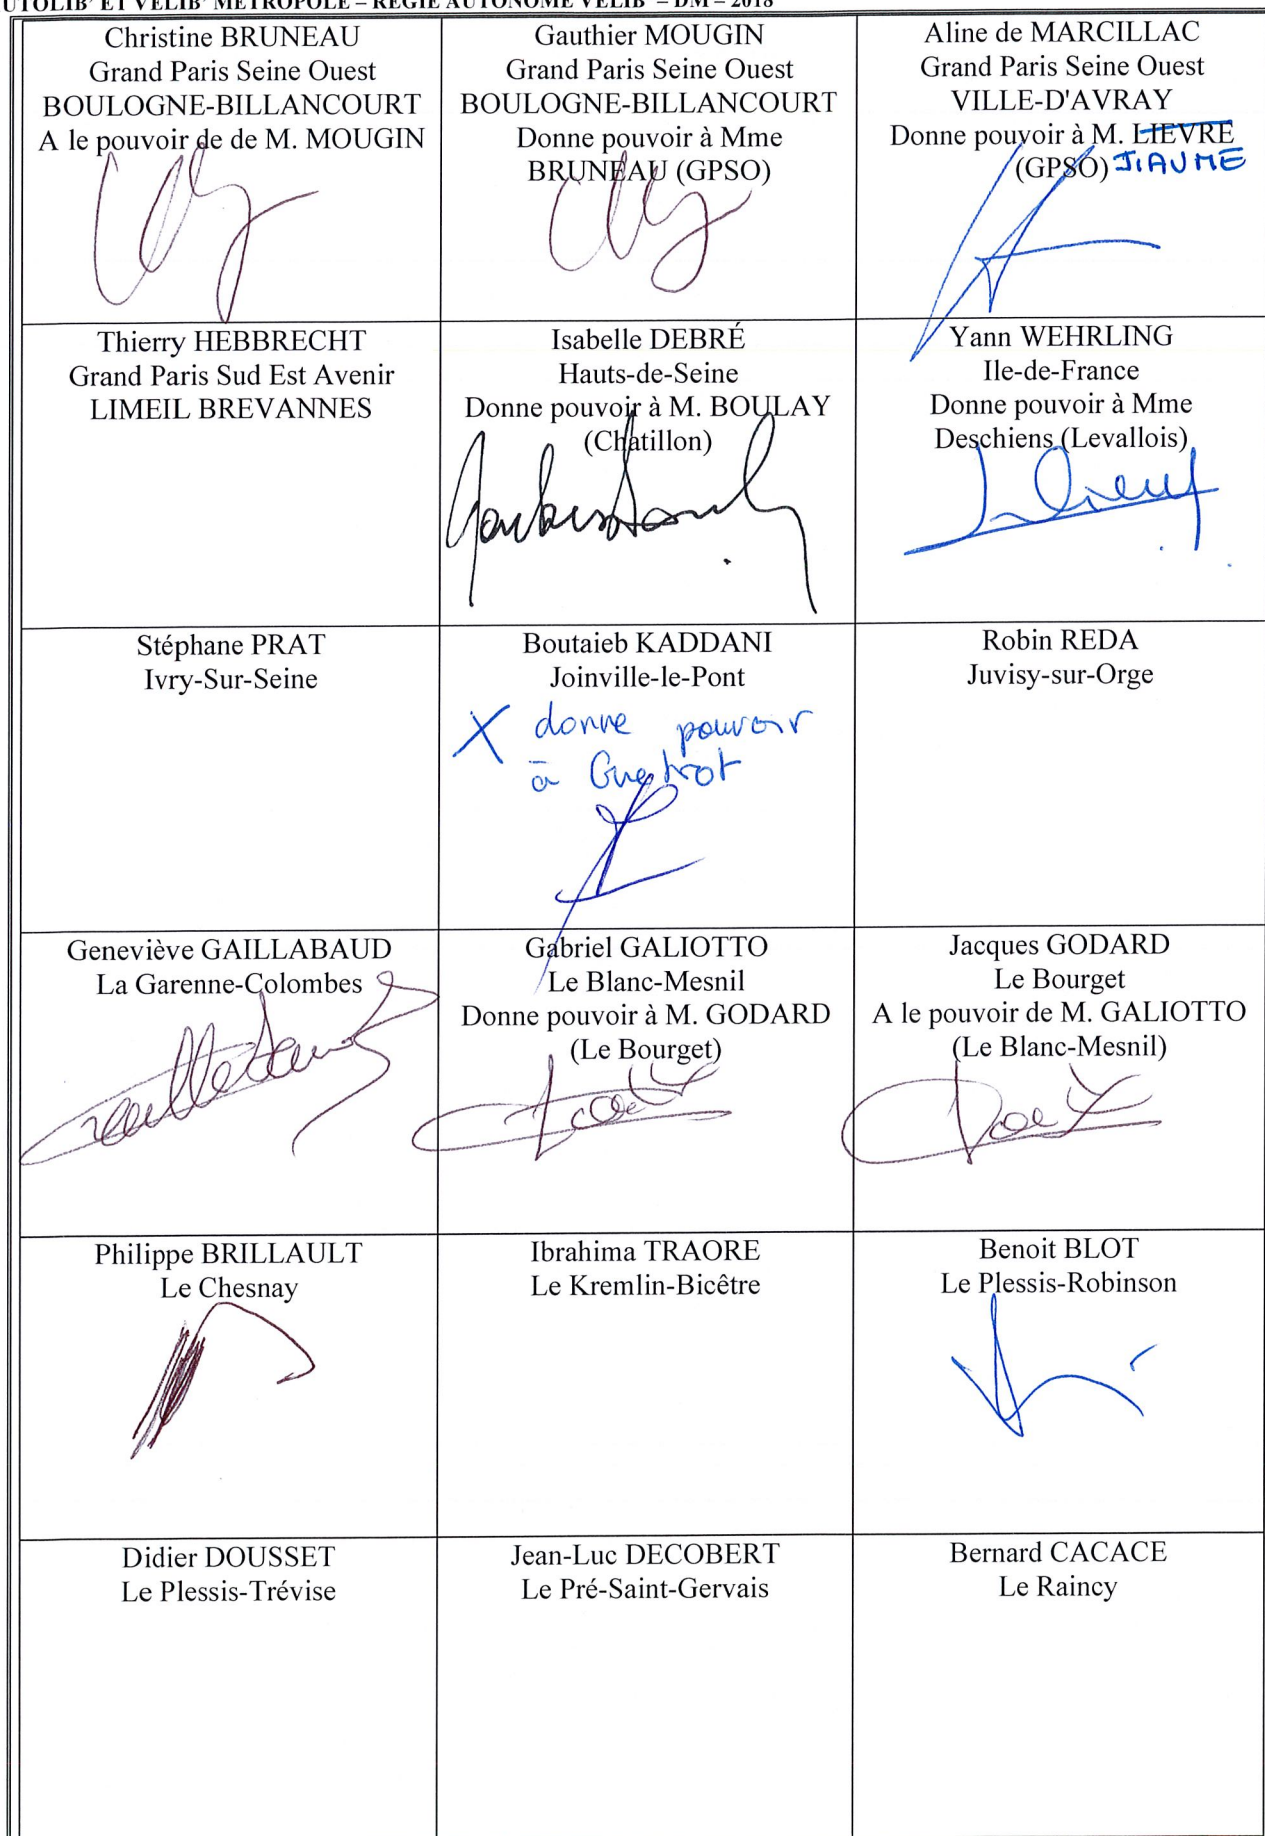 UTOLIB' ET VELIB' METROPOLE – REGIE AUTONOME VELIB' – DM – 2018
Christine BRUNEAU
Grand Paris Seine Ouest
BOULOGNE-BILLANCOURT
A le pouvoir de de M. MOUGIN
Gauthier MOUGIN
Grand Paris Seine Ouest
BOULOGNE-BILLANCOURT
Donne pouvoir à Mme
BRUNEAU (GPSO)
Aline de MARCILLAC
Grand Paris Seine Ouest
VILLE-D'AVRAY
Donne pouvoir à M. LIEVRE
(GPSO) JIAUME
Thierry HEBBRECHT
Grand Paris Sud Est Avenir
LIMEIL BREVANNES
Isabelle DEBRÉ
Hauts-de-Seine
Donne pouvoir à M. BOULAY
(Chatillon)
Yann WEHRLING
Ile-de-France
Donne pouvoir à Mme
Deschiens (Levallois)
Stéphane PRAT
Ivry-Sur-Seine
Boutaieb KADDANI
Joinville-le-Pont
X donne pouvoir
à
Robin REDA
Juvisy-sur-Orge
Geneviève GAILLABAUD
La Garenne-Colombes
Gabriel GALIOTTO
Le Blanc-Mesnil
Donne pouvoir à M. GODARD
(Le Bourget)
Jacques GODARD
Le Bourget
A le pouvoir de M. GALIOTTO
(Le Blanc-Mesnil)
Philippe BRILLAULT
Le Chesnay
Ibrahima TRAORE
Le Kremlin-Bicêtre
Benoit BLOT
Le Plessis-Robinson
Didier DOUSSET
Le Plessis-Trévise
Jean-Luc DECOBERT
Le Pré-Saint-Gervais
Bernard CACACE
Le Raincy